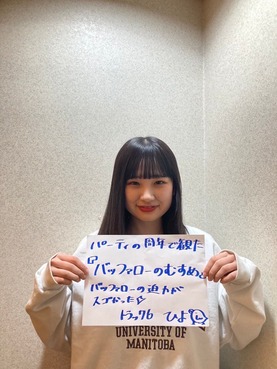 パーティの周年で観た
『バッファローのむすめ』
バッファローの迫力が
スゴかった♡
トラック6 ひよ
UNIVERSITY OF
MANITOBA